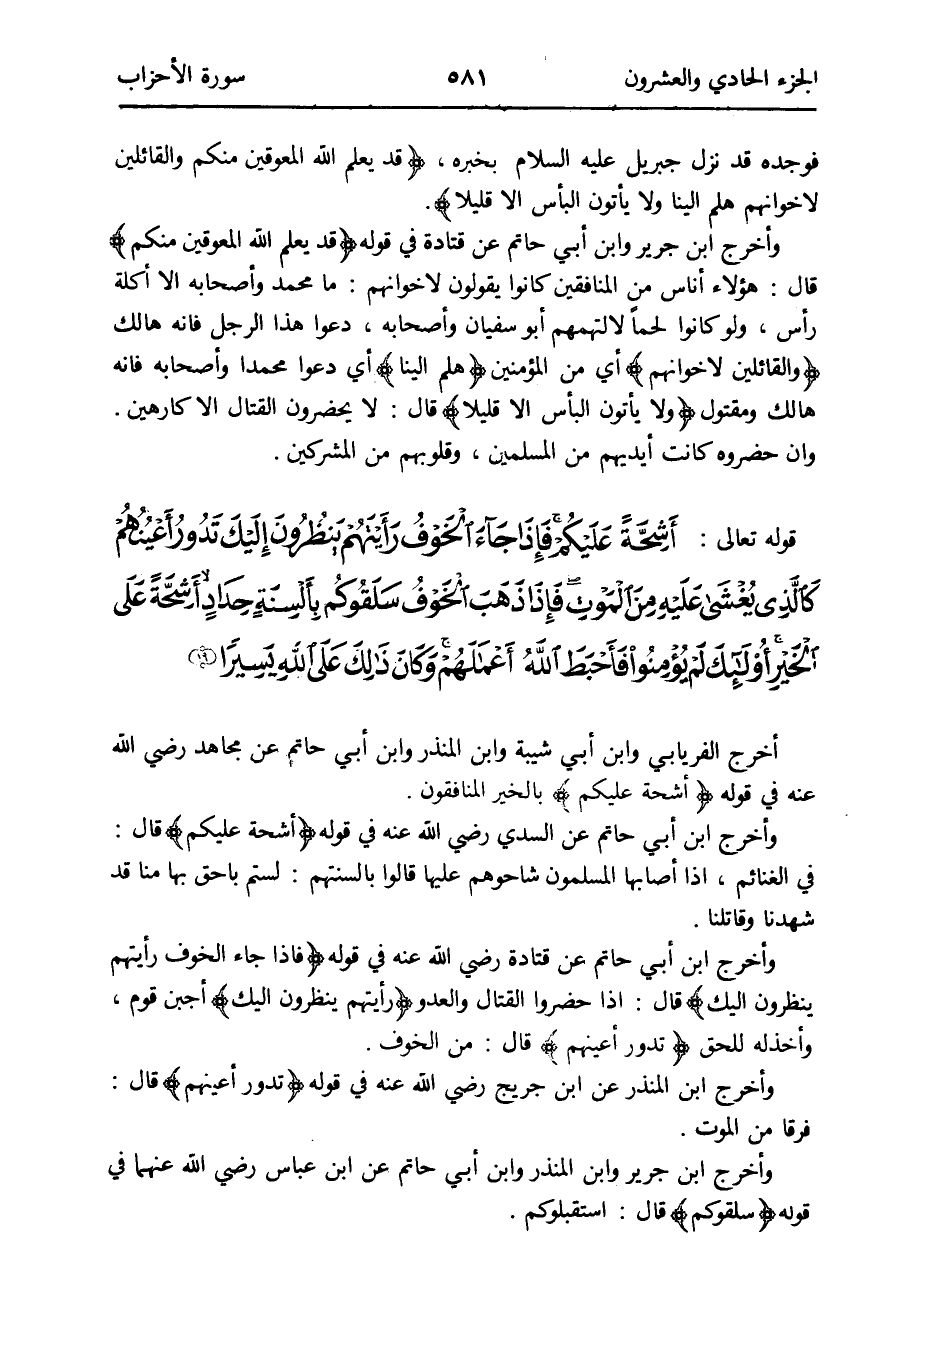 الجزء الحادي والعشرون ٥٨١ سورة الأحزاب
فوجده قد نزل جبريل عليه السلام بخبره ، ﴿قد يعلم الله المعوقين منكم والقائلين
لاخوانهم هلم الينا ولا يأتون البأس الا قليلا﴾.
وأخرج ابن جرير وابن أبي حاتم عن قتادة في قوله ﴿قد يعلم الله المعوقين منكم﴾
قال : هؤلاء أناس من المنافقين كانوا يقولون لاخوانهم : ما محمد وأصحابه الا أكلة
رأس ، ولو كانوا لحماً لالتهمهم أبو سفيان وأصحابه ، دعوا هذا الرجل فانه هالك
﴿والقائلين لاخوانهم﴾ أي من المؤمنين ﴿هلم الينا﴾ أي دعوا محمدا وأصحابه فانه
هالك ومقتول ﴿ولا يأتون البأس الا قليلا﴾ قال : لا يحضرون القتال الا كارهين .
وان حضروه كانت أيديهم من المسلمين ، وقلوبهم من المشركين .
قوله تعالى : أَشِحَّةً عَلَيْكُمْ ۖ فَإِذَا جَآءَ ٱلْخَوْفُ رَأَيْتَهُمْ يَنظُرُونَ إِلَيْكَ تَدُورُ أَعْيُنُهُمْ
كَٱلَّذِى يُغْشَىٰ عَلَيْهِ مِنَ ٱلْمَوْتِ ۖ فَإِذَا ذَهَبَ ٱلْخَوْفُ سَلَقُوكُم بِأَلْسِنَةٍ حِدَادٍ أَشِحَّةً عَلَى
ٱلْخَيْرِ ۚ أُوْلَـٰٓئِكَ لَمْ يُؤْمِنُوا۟ فَأَحْبَطَ ٱللَّهُ أَعْمَـٰلَهُمْ ۚ وَكَانَ ذَٰلِكَ عَلَى ٱللَّهِ يَسِيرًا ﴿١٩﴾
أخرج الفريابي وابن أبي شيبة وابن المنذر وابن أبي حاتم عن مجاهد رضي الله
عنه في قوله ﴿ أشحة عليكم ﴾ بالخير المنافقون .
وأخرج ابن أبي حاتم عن السدي رضي الله عنه في قوله ﴿أشحة عليكم﴾ قال :
في الغنائم ، اذا أصابها المسلمون شاحوهم عليها قالوا بالسنتهم : لستم باحق بها منا قد
شهدنا وقاتلنا .
وأخرج ابن أبي حاتم عن قتادة رضي الله عنه في قوله ﴿فاذا جاء الخوف رأيتهم
ينظرون اليك﴾ قال : اذا حضروا القتال والعدو ﴿رأيتهم ينظرون اليك﴾ أجبن قوم ،
وأخذله للحق ﴿ تدور أعينهم ﴾ قال : من الخوف .
وأخرج ابن المنذر عن ابن جريج رضي الله عنه في قوله ﴿تدور أعينهم﴾ قال :
فرقا من الموت .
وأخرج ابن جرير وابن المنذر وابن أبي حاتم عن ابن عباس رضي الله عنهما في
قوله ﴿سلقوكم﴾ قال : استقبلوكم .